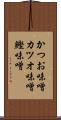 かつお味噌
カツオ味噌
鰹味噌